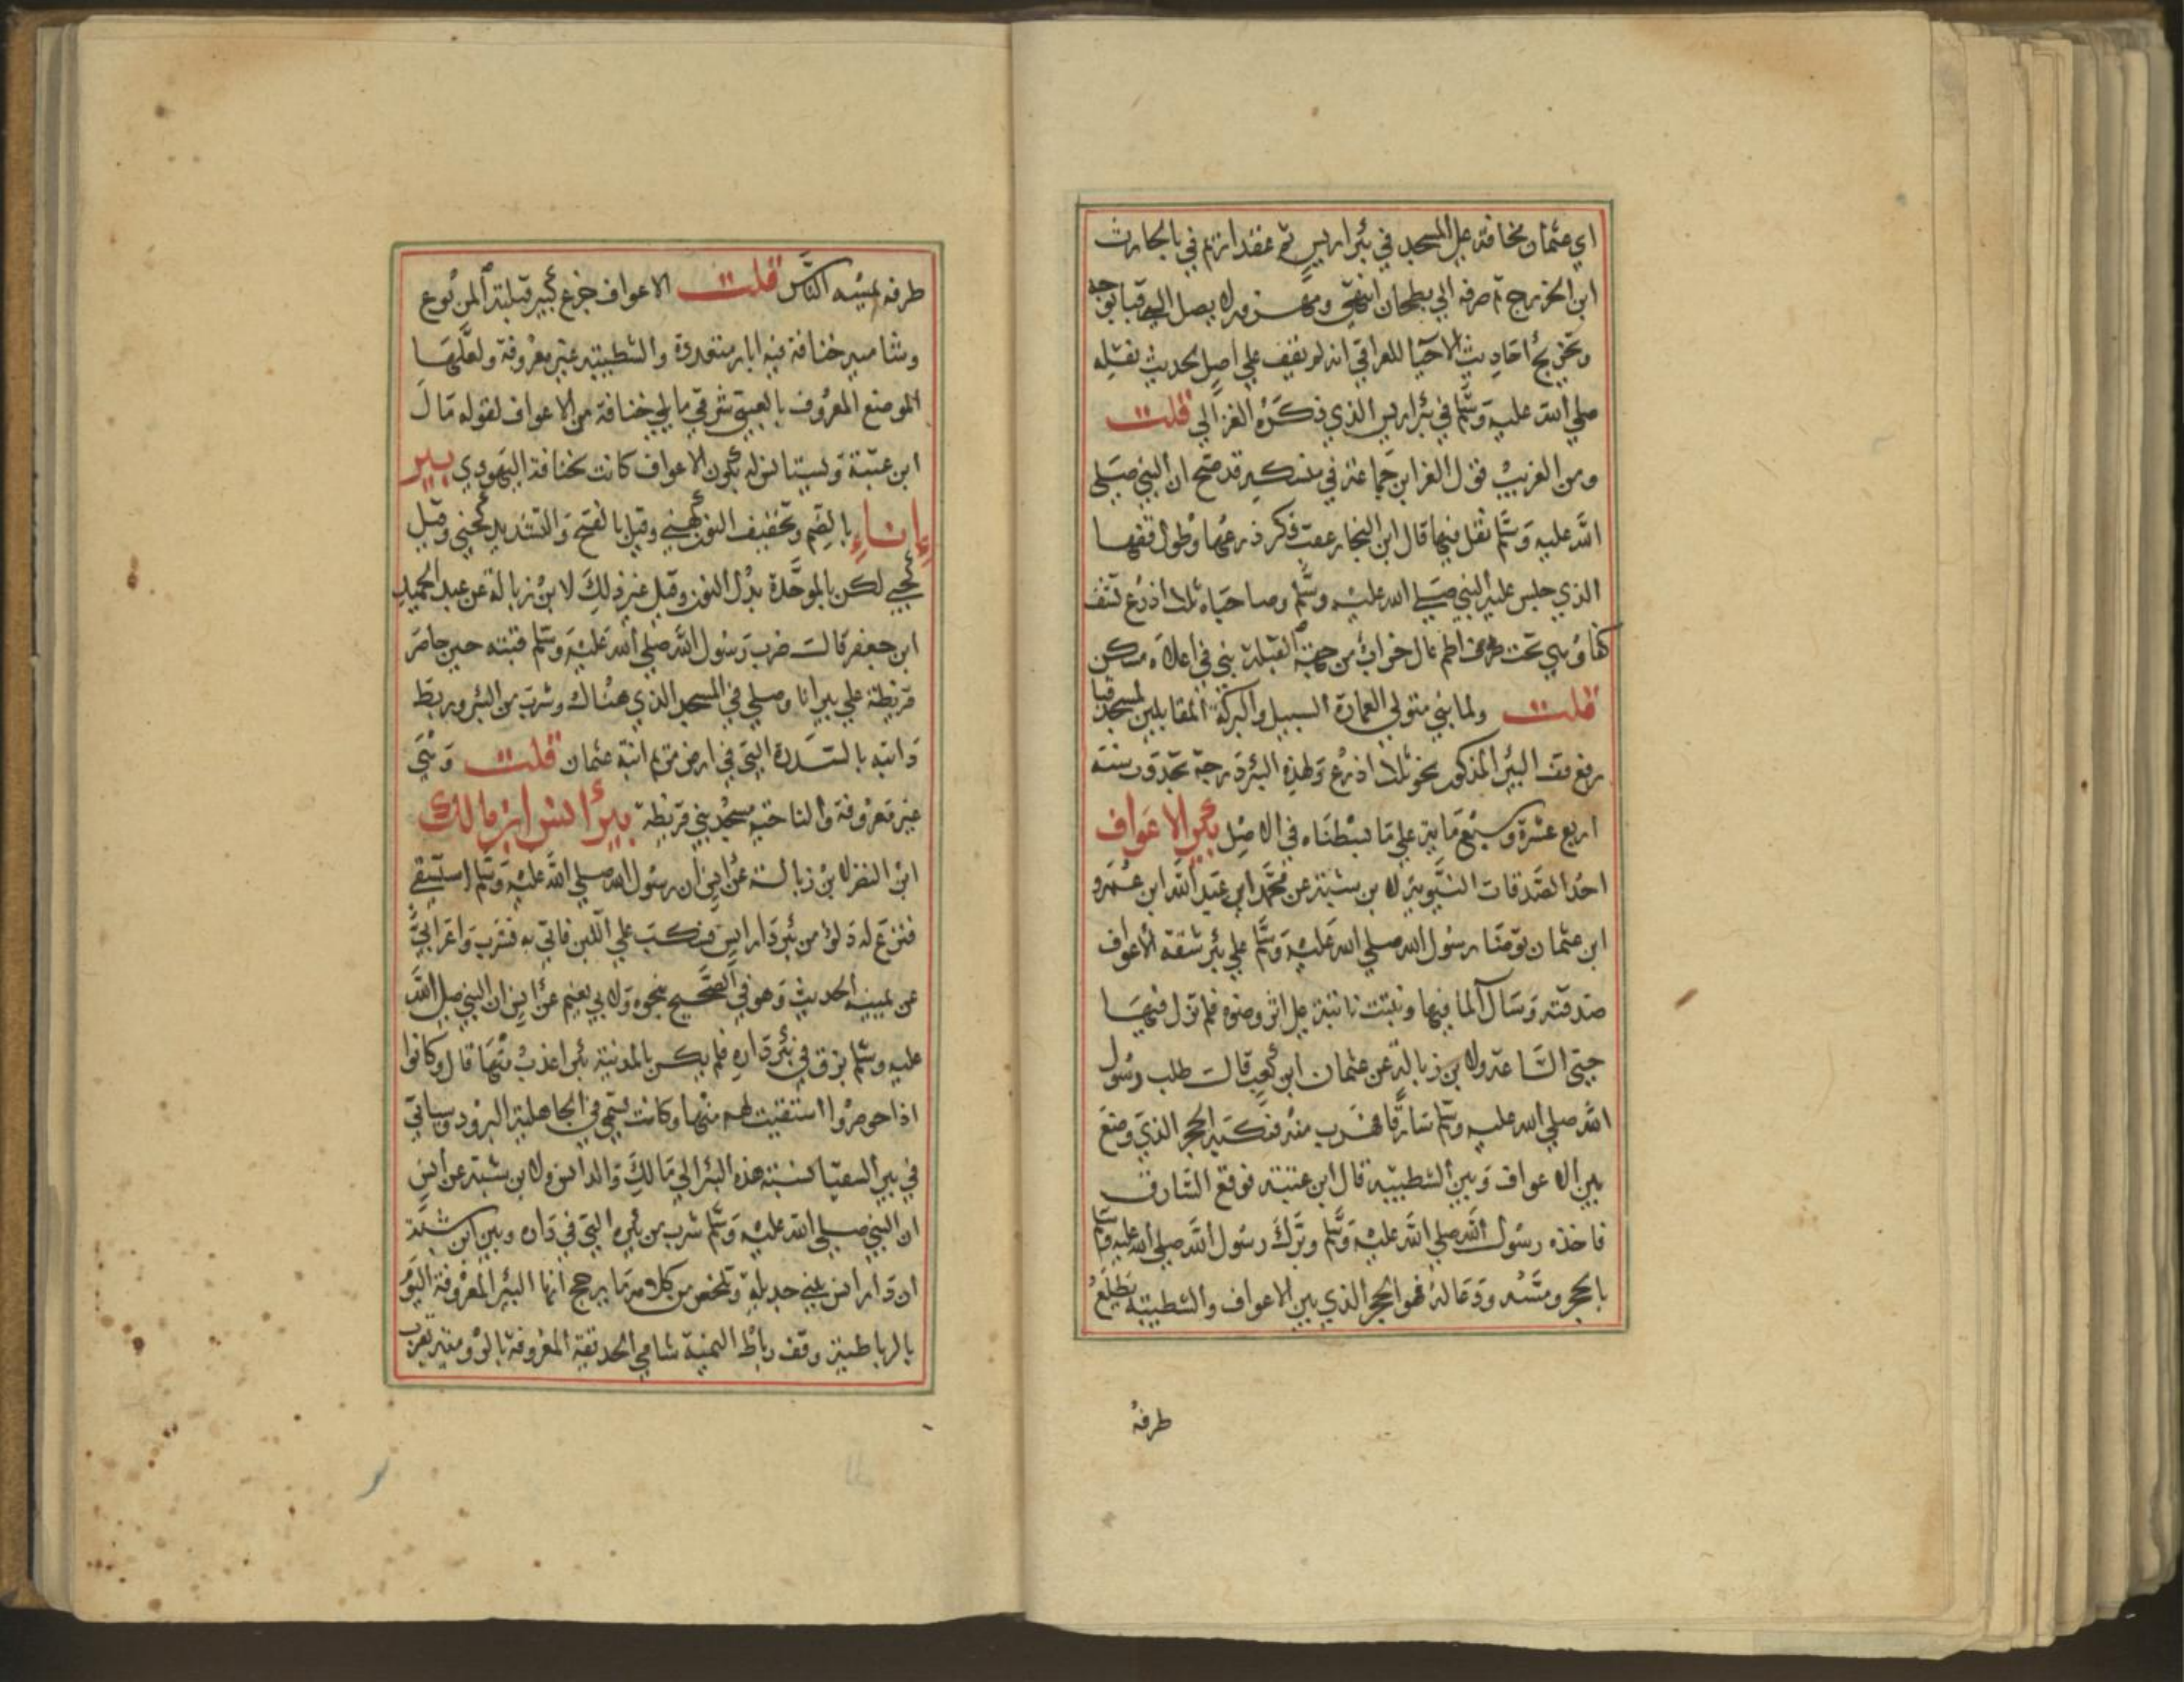 اي عثمان مخافة على المسجد في بئر اريس ثم عقد ازيم في بالحارث
ابن الخزرج ثم صرفه الي بطحان انتهى ومهزور لا يصل الي قبا بوجه
وتخريج احاديث الاحيا للعراقي انه لم نقف علي اصل الحديث تفله
صلي الله عليه وسلم في بئر اريس الذي ذكره الغزالي قلت
ومن الغريب قول العز ابن جماعة في منسكه قد صح ان النبي صلي
الله عليه وسلم تفل فيها قال ابن النجار عقب ذكر ذرعها وطول قفها
الذي جلس عليه النبي صلي الله عليه وسلم وصاحباه ثلاث اذرع تنقف
كفا وهي تحت اطم عال خراب من جهة القبلة بني في اعلاه مسكن
قلت ولما بني متولي العمارة السبيل والبركة المقابلين لمسجد قبا
رفع قف البير المذكور نحو ثلاث اذرع ولهذه البئر درجة تجدد ورسنة
اربع عشرة وسبع ماية علي ما بسطناه في الاصل بئر الاعواف
احد الصدقات النبوية لابن شبة عن محمد ابن عبد الله ابن عمرو
ابن عثمان توضا رسول الله صلي الله عليه وسلم علي بئر شقة الاعواف
صدقته وسال الما فيها ونبتت نابتة علي اثر وضوه فلم تزل فيها
حتى الساعة ولابن زبالة عن عثمان ابن كعب قالت طلب رسول
الله صلي الله عليه وسلم سارقا فهرب منه فنكبه الحجر الذي وضع
بين الاعواف وبين الشطبية قال ابن عتبة فوقع السارق
فاخذه رسول الله صلي الله عليه وسلم وبرك رسول الله صلي الله عليه وسلم
بالحجر ومسه ودعا له فهو الحجر الذي بين الاعواف والشطبية يطلع
طرفه
طرفه يمسه الناس قلت الاعواف جزع كبير قبلة المربوع
وشامير خنافة فيه ابار متعددة والشطبية غير معروفة ولعلها
الموضع المعروف بالعتبي شرقي ما يلي خنافة من الاعواف لقوله قال
ابن عتبة ولستا نزله بكون الاعواف كانت لخنافة اليهودي بير
إناء بالضم وتخفيف النون كهني وقيل بالفتح والتشديد كحتي وقيل
كحي لكن بالموحدة بدل النون وقيل غير ذلك لابن زبالة عن عبد الحميد
ابن جعفر قالت ضرب رسول الله صلي الله عليه وسلم قبته حين حاصر
قريظة علي بير انا وصلي في المسجد الذي هناك وشرب من البئر وربط
دابته بالسدرة التي في ارض مريم ابنة عثمان قلت وهي
غير معروفة والناحية مسجد بني قريظة بير انس ابن مالك
ابن النضر لابن زبالة عن انس ان رسول الله صلي الله عليه وسلم استسقى
فنزع له دلو من بئر دار انس فسكب علي اللبن فاتي به فشرب واعرابي
عن يمينه الحديث وهو في الصحيح بنحوه ولابي نعيم عن انس ان النبي صلى الله
عليه وسلم بزق في بئر داره فلم يكن بالمدينة بئر اعذب منها قال وكانوا
اذا حوصروا استقيت لهم منها وكانت تسمي في الجاهلية البرود وسياتي
في بير السقيا نسبة هذه البئر الي مالك والد انس ولابن شبة عن انس
ان النبي صلي الله عليه وسلم شرب من بئره التي في داره وبين ابن شبة
ان دار انس بني حديلة وتلخص من كلامه ما يرجح انها البئر المعروفة اليوم
بالرباطية وقف رباط اليمنية شامي الحديقة المعروفة بالرومية بقرب